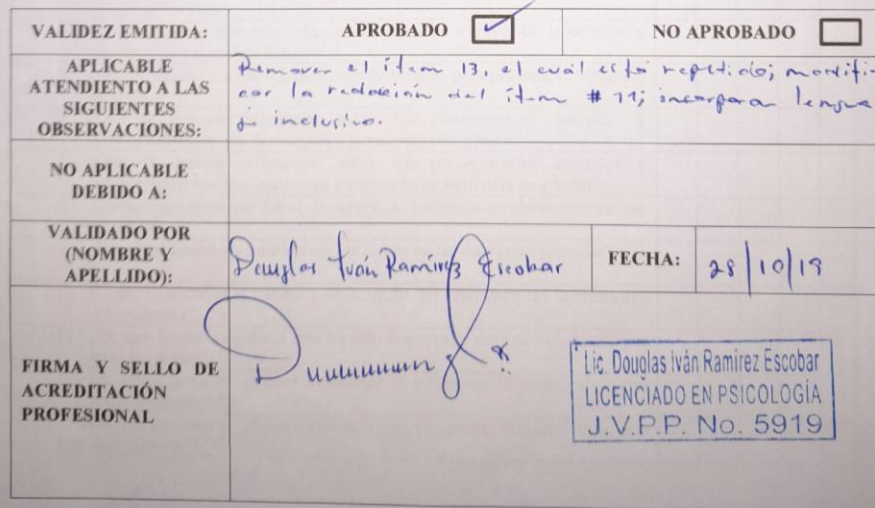 VALIDEZ EMITIDA: APROBADO NO APROBADO
APLICABLE
ATENDIENTO A LAS
SIGUIENTES
OBSERVACIONES:
Remover el ítem 13, el cuál está repetido; modifi-
car la redacción del ítem # 11; incorpora lengua
je inclusivo.
NO APLICABLE
DEBIDO A:
VALIDADO POR
(NOMBRE Y
APELLIDO):
Douglas Iván Ramírez Escobar
FECHA: 28/10/19
FIRMA Y SELLO DE
ACREDITACIÓN
PROFESIONAL
Lic. Douglas Iván Ramírez Escobar
LICENCIADO EN PSICOLOGÍA
J.V.P.P. No. 5919